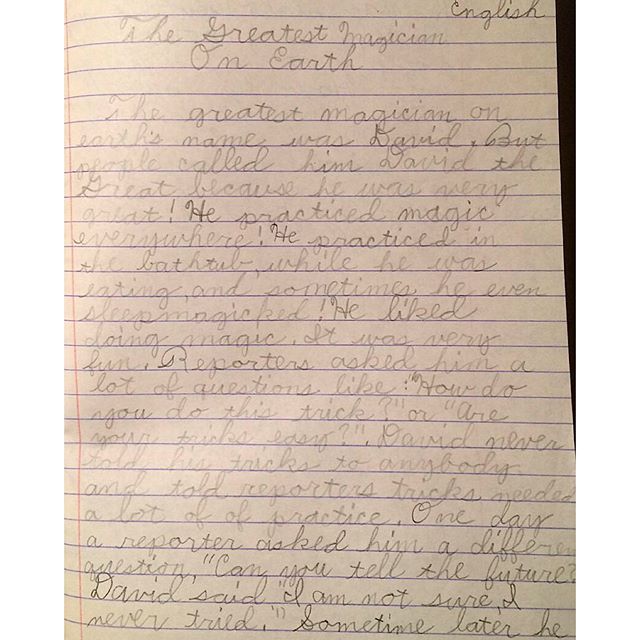 English
The Greatest Magician
On Earth
The greatest magician on
earth's name was David. But
people called him David the
Great because he was very
great! He practiced magic
everywhere! He practiced in
the bathtub, while he was
eating, and sometimes he even
sleepmagicked! He liked
doing magic. It was very
fun. Reporters asked him a
lot of questions like: "How do
you do this trick?" or "Are
your tricks easy?". David never
told his tricks to anybody
and told reporters tricks needed
a lot of of practice. One day
a reporter asked him a differen
question, "Can you tell the future?
David said "I am not sure, I
never tried." Sometime later he